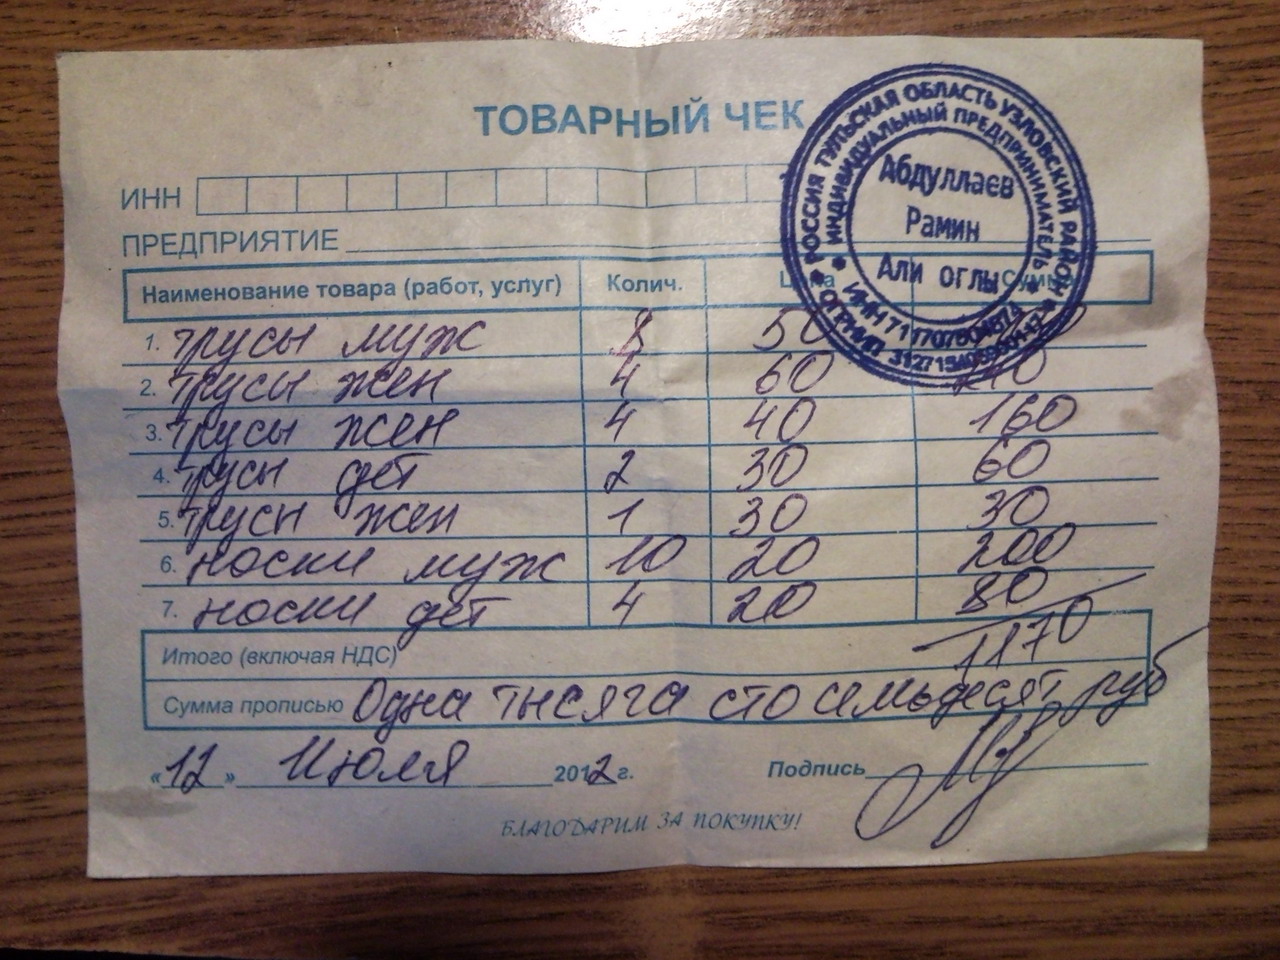 ТОВАРНЫЙ ЧЕК
РОССИЯ ТУЛЬСКАЯ ОБЛАСТЬ УЗЛОВСКИЙ РАЙОН
ИНДИВИДУАЛЬНЫЙ ПРЕДПРИНИМАТЕЛЬ
Абдуллаев
Рамин
Али оглы
ИНН
ОГРНИП
ИНН
ПРЕДПРИЯТИЕ
Наименование товара (работ, услуг) Колич.
1. трусы муж 8 50
2. трусы жен 4 60
3. трусы жен 4 40 160
4. трусы дет 2 30 60
5. трусы жен 1 30 30
6. носки муж 10 20 200
7. носки дет 4 20 80
Итого (включая НДС) 1170
Сумма прописью Одна тысяга сто семьдесят руб
«12» Июля 2012 г. Подпись
БЛАГОДАРИМ ЗА ПОКУПКУ!